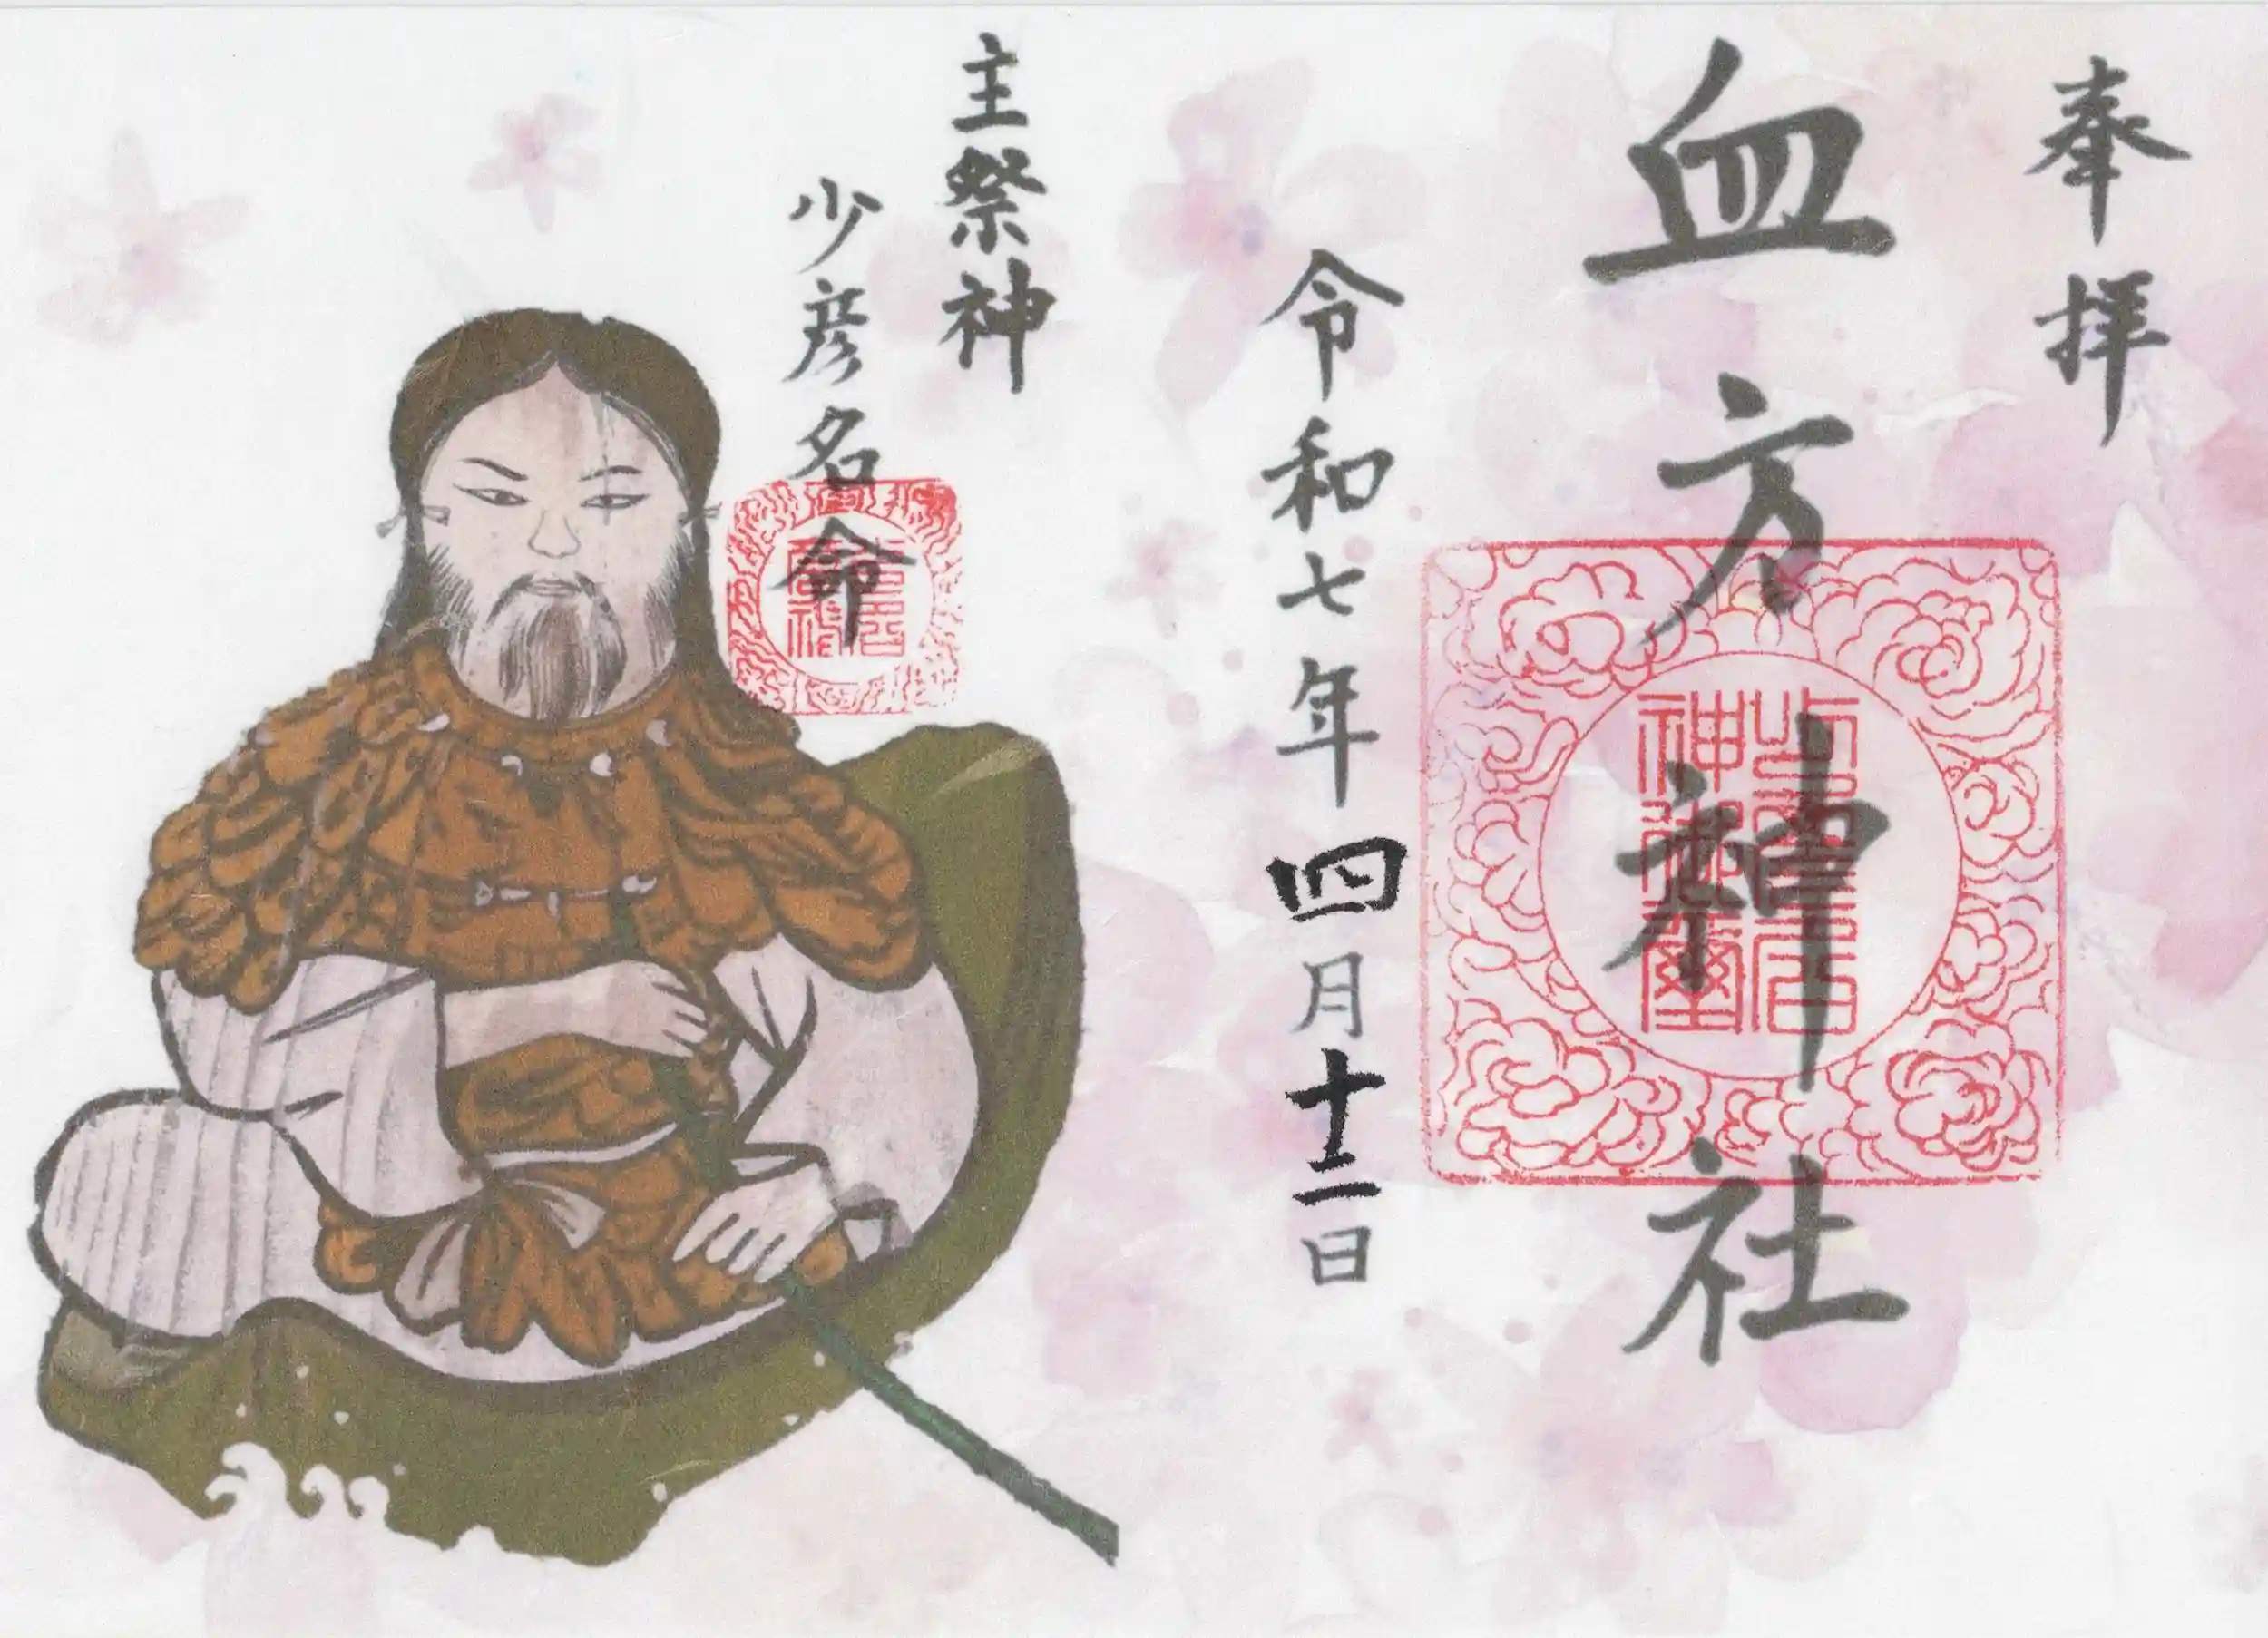 奉拝
血方神社
令和七年四月十二日
主祭神
少彦名命